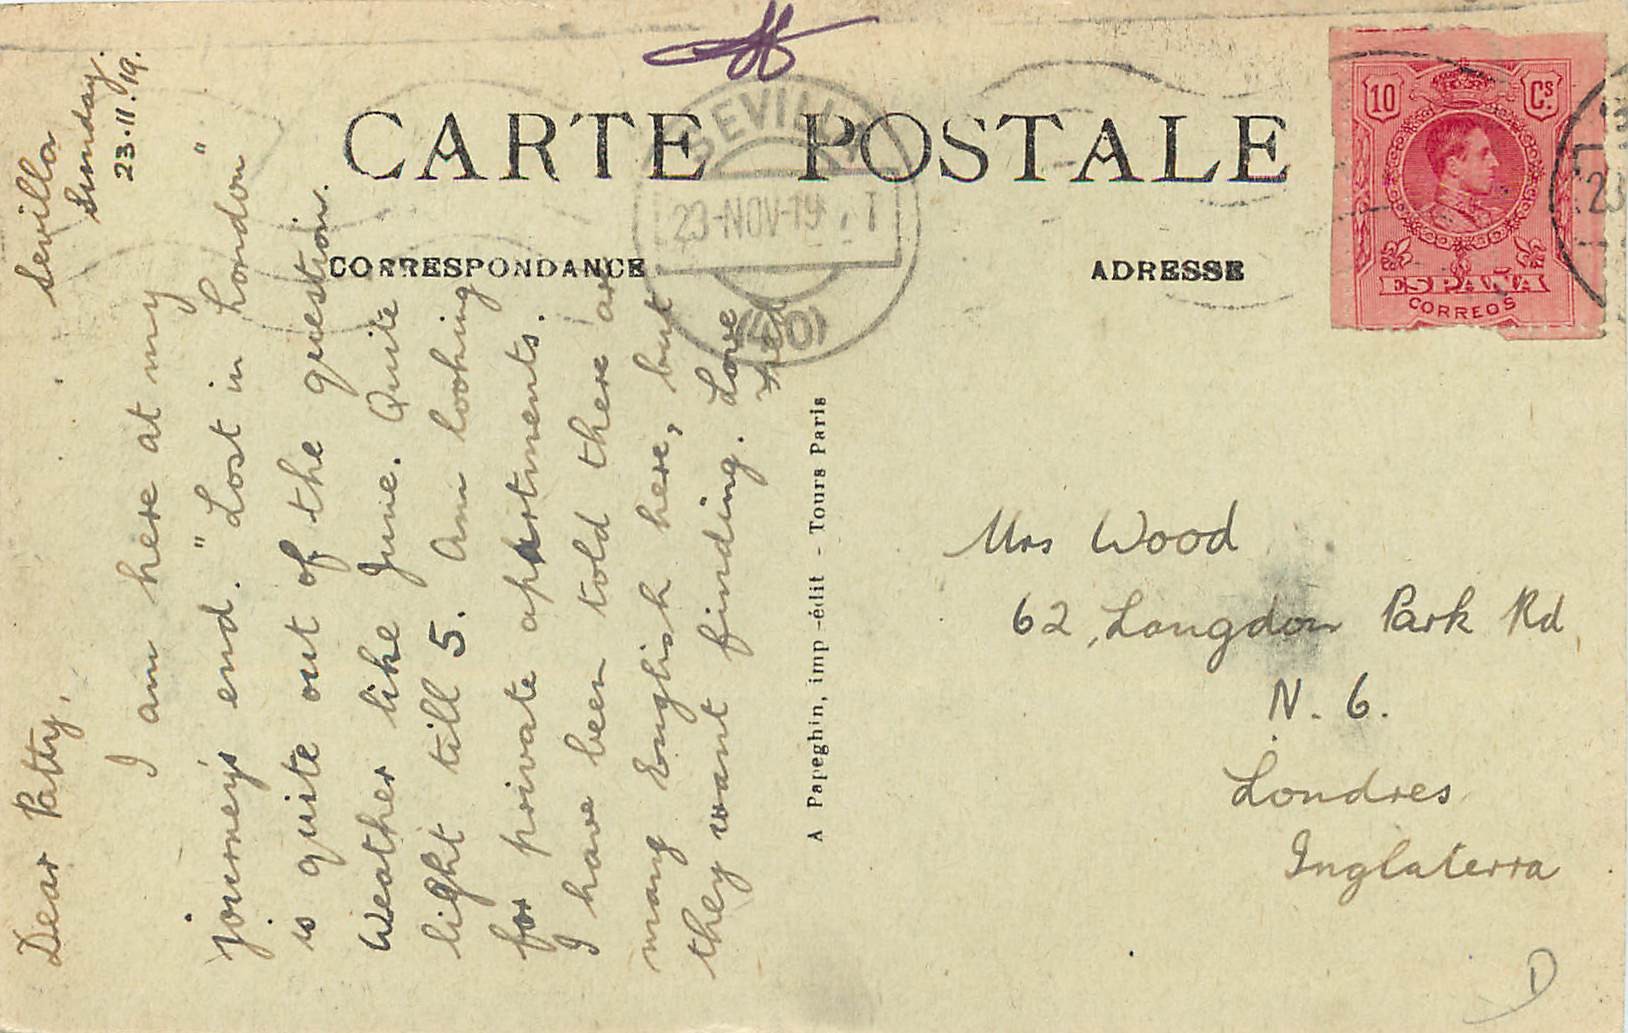 CARTE POSTALE
CORRESPONDANCE
ADRESSE
SEVILLA
23-NOV-19
(40)
10 Cs.
ESPAÑA
CORREOS
23
Sevilla
Sunday.
23.11.19.
Dear Patty,
I am here at my
journey's end. "Lost in London"
is quite out of the question.
Weather like June. Quite
light till 5. Am looking
for private apartments.
I have been told there are
many English here, but
they want finding. Love
Fred
A Papeghin, imp -édit - Tours Paris
Mrs Wood
62, Langdon Park Rd
N. 6.
Londres
Inglaterra
D